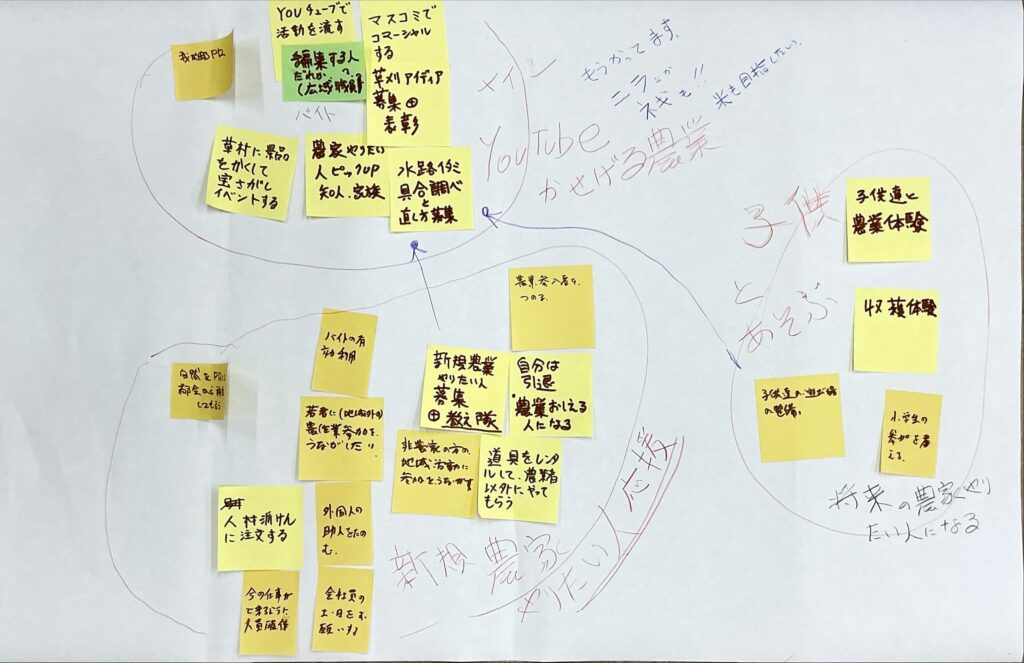 YOUチューブで
活動を流す
マスコミで
コマーシャル
する
草刈アイディア
募集⊕
表彰
編集する人
だれか?
(広域職員)
バイト
草村に景品
をかくして
宝さがし
イベントする
農家やりたい
人ピックUP
知人、家族
水路イタミ
具合調べ
と
直し方募集
メイン
YouTube
かせげる農業
もうかってます。
ニラとか
ネギも!!
米も目指したい。
子供
と
あそぶ
子供達と
農業体験
収穫体験
子供達の遊び場
の整備。
小学生の
参加を考
える。
将来の農家やり
たい人になる
農業参入者を、
つのる。
バイトの有
効利用
新規農業
やりたい人
募集
⊕教え隊
自分は
引退
・農業おしえる
人になる
若者に(地域外の)
農作業参加を、
うながしたい。
非農家の方の
地域活動に
参加をうながす
道具をレンタ
ルして、農業者
以外にやって
もらう
人材派けん
に注文する
外国人の
助人をたの
む。
今の仕事が
人員確保
会社員の
土・日をお
願いする
新規農家
やりたい人応援